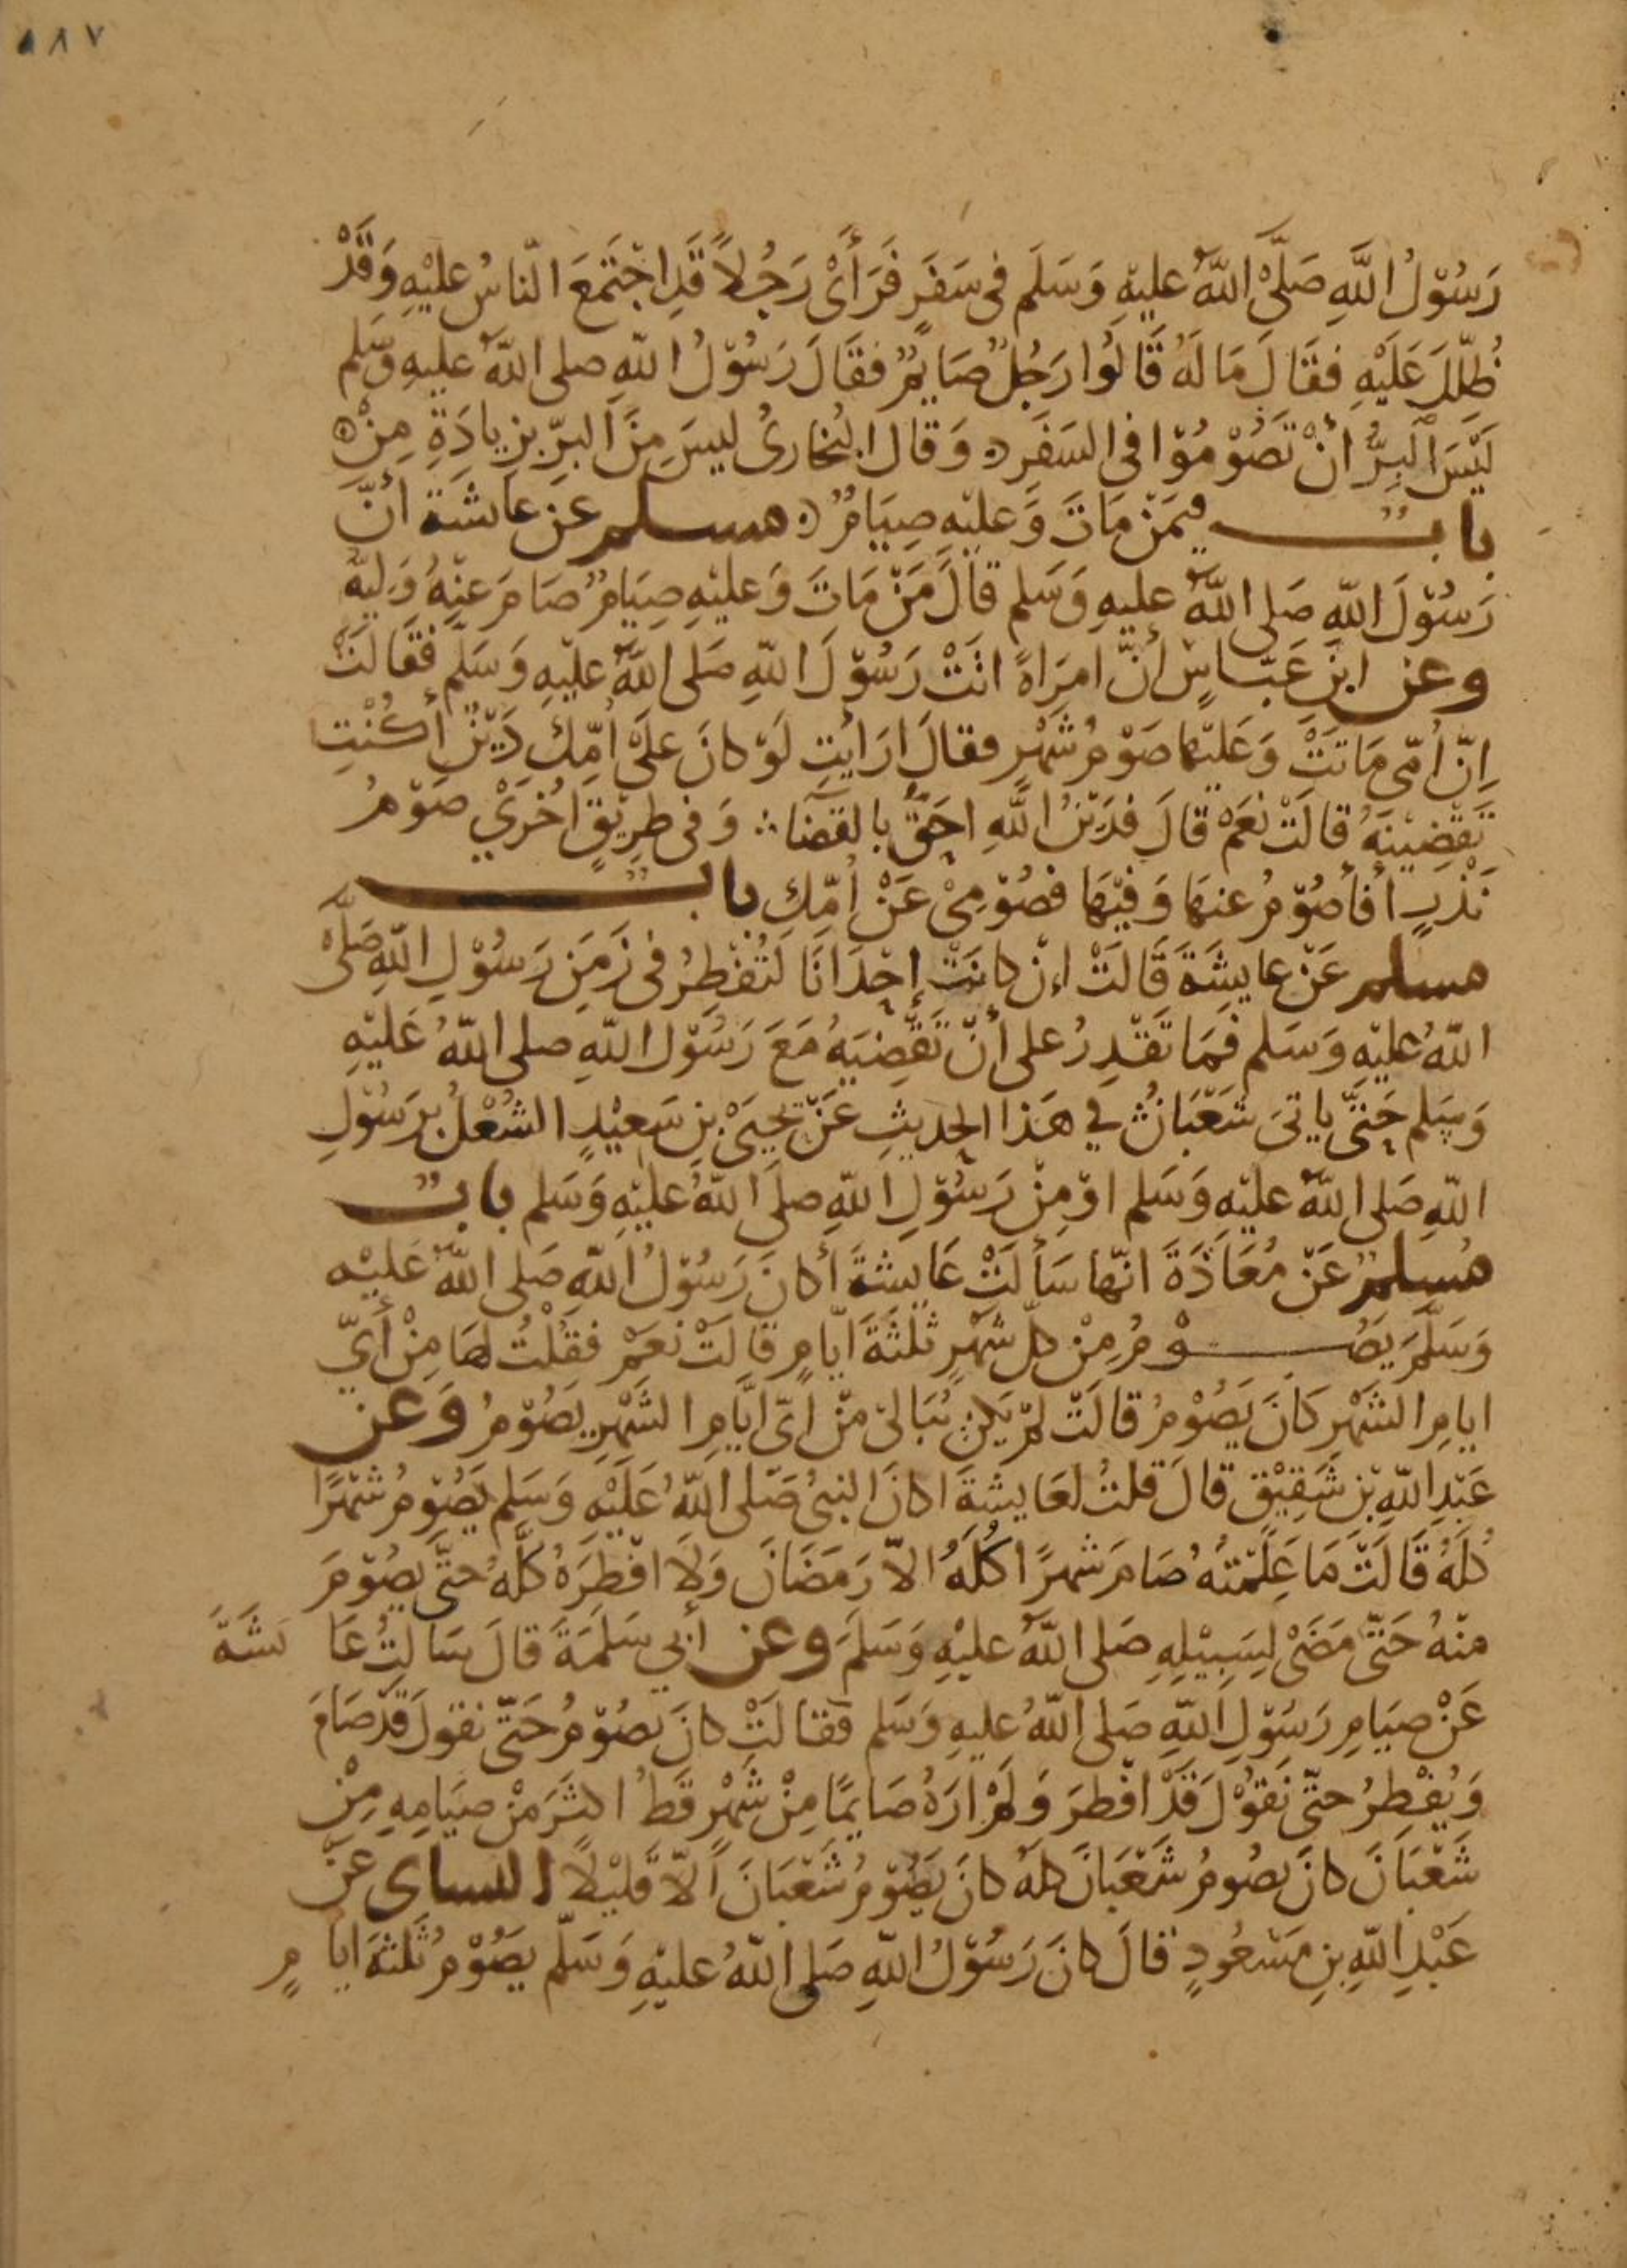 ١٨٧
رَسُوْلُ اللَّهِ صَلَّىْ اللَّهُ عليْهِ وَسَلَم فى سَفَرٍ فَرَأَىْ رَجُلاً قَدِ اجْتَمَعَ النّاسُ عليْهِ وَقَدْ
ظُلِّلَ عَلَيْهِ فقَالَ مَا لَهُ قَالُوا رَجُلٌ صَايمٌ فقَالَ رَسُوْلُ اللّهِ صلى اللّهُ عليهِ وسَلم
لَيْسَ الْبِرُّ أنْ تَصُوْمُوْا فى السَفَرِ ۞ وَقال البُخارىُ ليسَ مِنَ البرّ بزِيادَةِ مِنْ ۞
بابٌ فيمَنْ مَاتَ وَعليْهِ صِيَامٌ ۞ مسلم عَن عايشَة أنّ
رَسُوْلَ اللّهِ صَلى اللّهُ عليهِ وَسَلم قالَ مَنْ مَاتَ وَعليْهِ صِيَامٌ صَامَ عنْهُ وَليّهُ
وعن ابنِ عَبّاسٍ أنَّ امرَاةً اتَتْ رَسُوْلَ اللّهِ صَلى اللّهُ عليْهِ وَسَلّم فَقالَتْ
اِنّ اُمّى مَاتَتْ وَعَليْها صَوْمُ شَهْرٍ فقالَ ارَايْتِ لَوْ كانَ علىْ اُمّكِ دَيْنٌ أكُنْتِ
تَقْضِيْنَهُ قالَتْ نعَمْ قالَ فدَيْنُ اللَّهِ احَقُّ بالقضَا ؞ وَفى طرِيْقٍ اُخْرَيْ صَوْمُ
نَذْرٍ أفأصُوْمُ عنهَا وَفيْهَا فصُوْمِىْ عَنْ اُمّكِ بابٌ
مسلم عَنْ عايشَةَ قَالَتْ اِنْ كانَتْ إحْدَانَا لَتُفْطِرُ فى زَمَنِ رَسُوْلِ اللّهِ صَلَّىْ
اللّهُ عليْهِ وَسَلم فمَا تَقْدِرُ على أنْ تَقْضِيَهُ مَعَ رَسُوْل اللّهِ صلى اللّهُ عَليْهِ
وَسَلم حَتّى ياتىَ شَعْبَانُ في هَذا الحديثِ عَنْ يحيَىْ بنِ سَعيْدٍ الشُغْلُ برَسُوْلِ
اللّهِ صَلى اللّهُ عليْهِ وَسَلم اوْ مِنْ رَسُوْلِ اللّهِ صلى اللّهُ عليْهِ وَسَلم بابٌ
مُسلمٌ عَنْ مُعَاذَةَ انّها سَألَتْ عَايشةَ أكانَ رَسُوْلُ اللّهِ صَلى اللّهُ عَليْهِ
وَسَلَّمَ يَصُوْمُ مِنْ كلّ شَهْرٍ ثلثَةَ ايّامٍ قالَتْ نعَمْ فقلْتُ لهَا مِنْ أَيّ
ايامِ الشَهْرِ كَانَ يَصُوْمُ قالَتْ لمْ يَكنْ يُبَالىْ مّنْ اَىّ ايّامِ الشَهْرِ يَصُوْمُ وَعَن
عَبْدِ اللّهِ بْنِ شَقِيْقٍ قالَ قلتُ لعَايشَةَ اكانَ النبىُ صَلى اللّهُ عَلَيْهِ وَسَلم يَصُوْمُ شَهْرًا
كُلَهُ قَالَتْ مَا عَلِمْتُهُ صَامَ شَهرًا كُلَهُ الاّ رَمَضَانَ وَلا افْطَرَهُ كُلَّهُ حتَّى يصُوْمَ
منْهُ حَتّى مَضَىْ لِسَبِيْلِهِ صَلى اللّهُ عليْهِ وَسَلَمَ وعن أبي سَلمَةَ قالَ سَالتُ عَا يشَةَ
عَنْ صيَامِ رَسُوْلِ اللّهِ صَلى اللّهُ عليهِ وَسَلم فقالَتْ كانَ يصُوْمُ حَتّى نقولَ قَدْ صَامَ
وَيُفْطِرُ حتّى نَقوْلَ قَدْ افْطرَ وَلمْ ارَهُ صَايمًا مِنْ شَهْرٍ قَطُ اكثَرَ مِنْ صيَامِهِ مِنْ
شَعْبَانَ كانَ يصُومُ شَعْبَانَ كلهُ كانَ يَصُوْمُ شَعْبَانَ اَلاّ قَليْلاً النساى عَنْ
عَبْدِ اللّهِ بنِ مَسْعُودٍ قالَ كانَ رَسُوْلُ اللّهِ صَلى اللّهُ عليْهِ وَسَلّم يصَوُمُ ثَلثةَ ايا مٍ